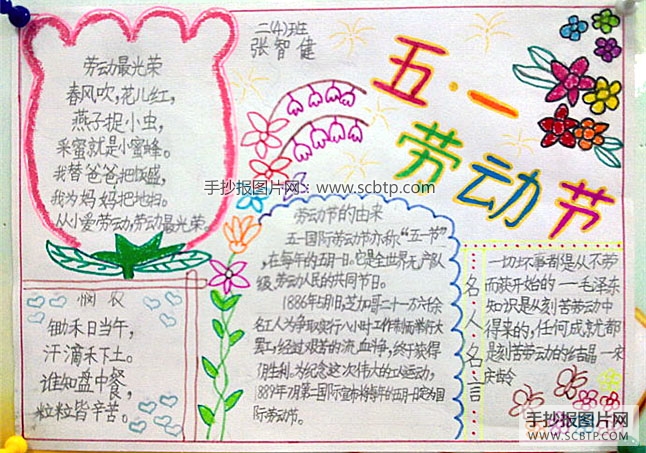 二(4)班
张智健
五·一
劳动节
劳动最光荣
春风吹,花儿红,
燕子捉小虫,
采蜜就是小蜜蜂。
我替爸爸把饭盛,
我为妈妈把地扫。
从小爱劳动劳动最光荣。
手抄报图片网:www.scbtp.com
悯农
锄禾日当午,
汗滴禾下土。
谁知盘中餐,
粒粒皆辛苦。
劳动节的由来
五一国际劳动节亦称“五一节”
,在每年的五月一日。它是全世界无产队
级,劳动人民的共同节日。
1886年5月1日芝加哥二十一万六千余
名工人为争取实行八小时工作制而举行大
罢工,经过艰苦的流血斗争,终于获得
了胜利。为纪念这次伟大的工人运动,
1889年7月第二国际宣布将每年的五月一日定为国
际劳动节。
名人名言
一切坏事都是从不劳
而获开始的—毛泽东
知识是从刻苦劳动中
得来的,任何成就都
是刻苦劳动的结晶—宋
庆龄
手抄报图片网
WWW.SCBTP.COM